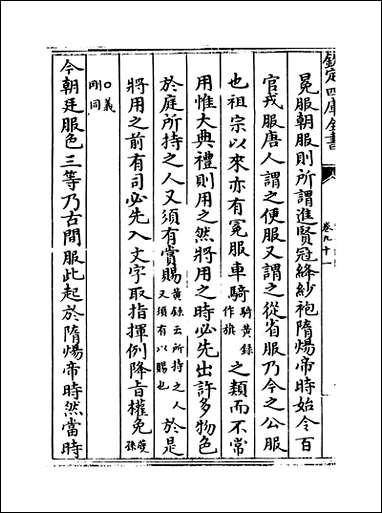 欽定四庫全書
卷九十一
冕服朝服則所謂進賢冠絳紗袍隋煬帝時始令百
官戎服唐人謂之便服又謂之從省服乃今之公服
也祖宗以來亦有冕服車騎騎黃錄作旗之類而不常
用惟大典禮則用之然將用之時必先出許多物色
於庭所持之人又須有賞賜黃錄云所持之人又須有以賜也於是
將用之前有司必先入文字取指揮例降旨權免夔孫
○義剛同
今朝廷服色三等乃古間服此起於隋煬帝時然當時